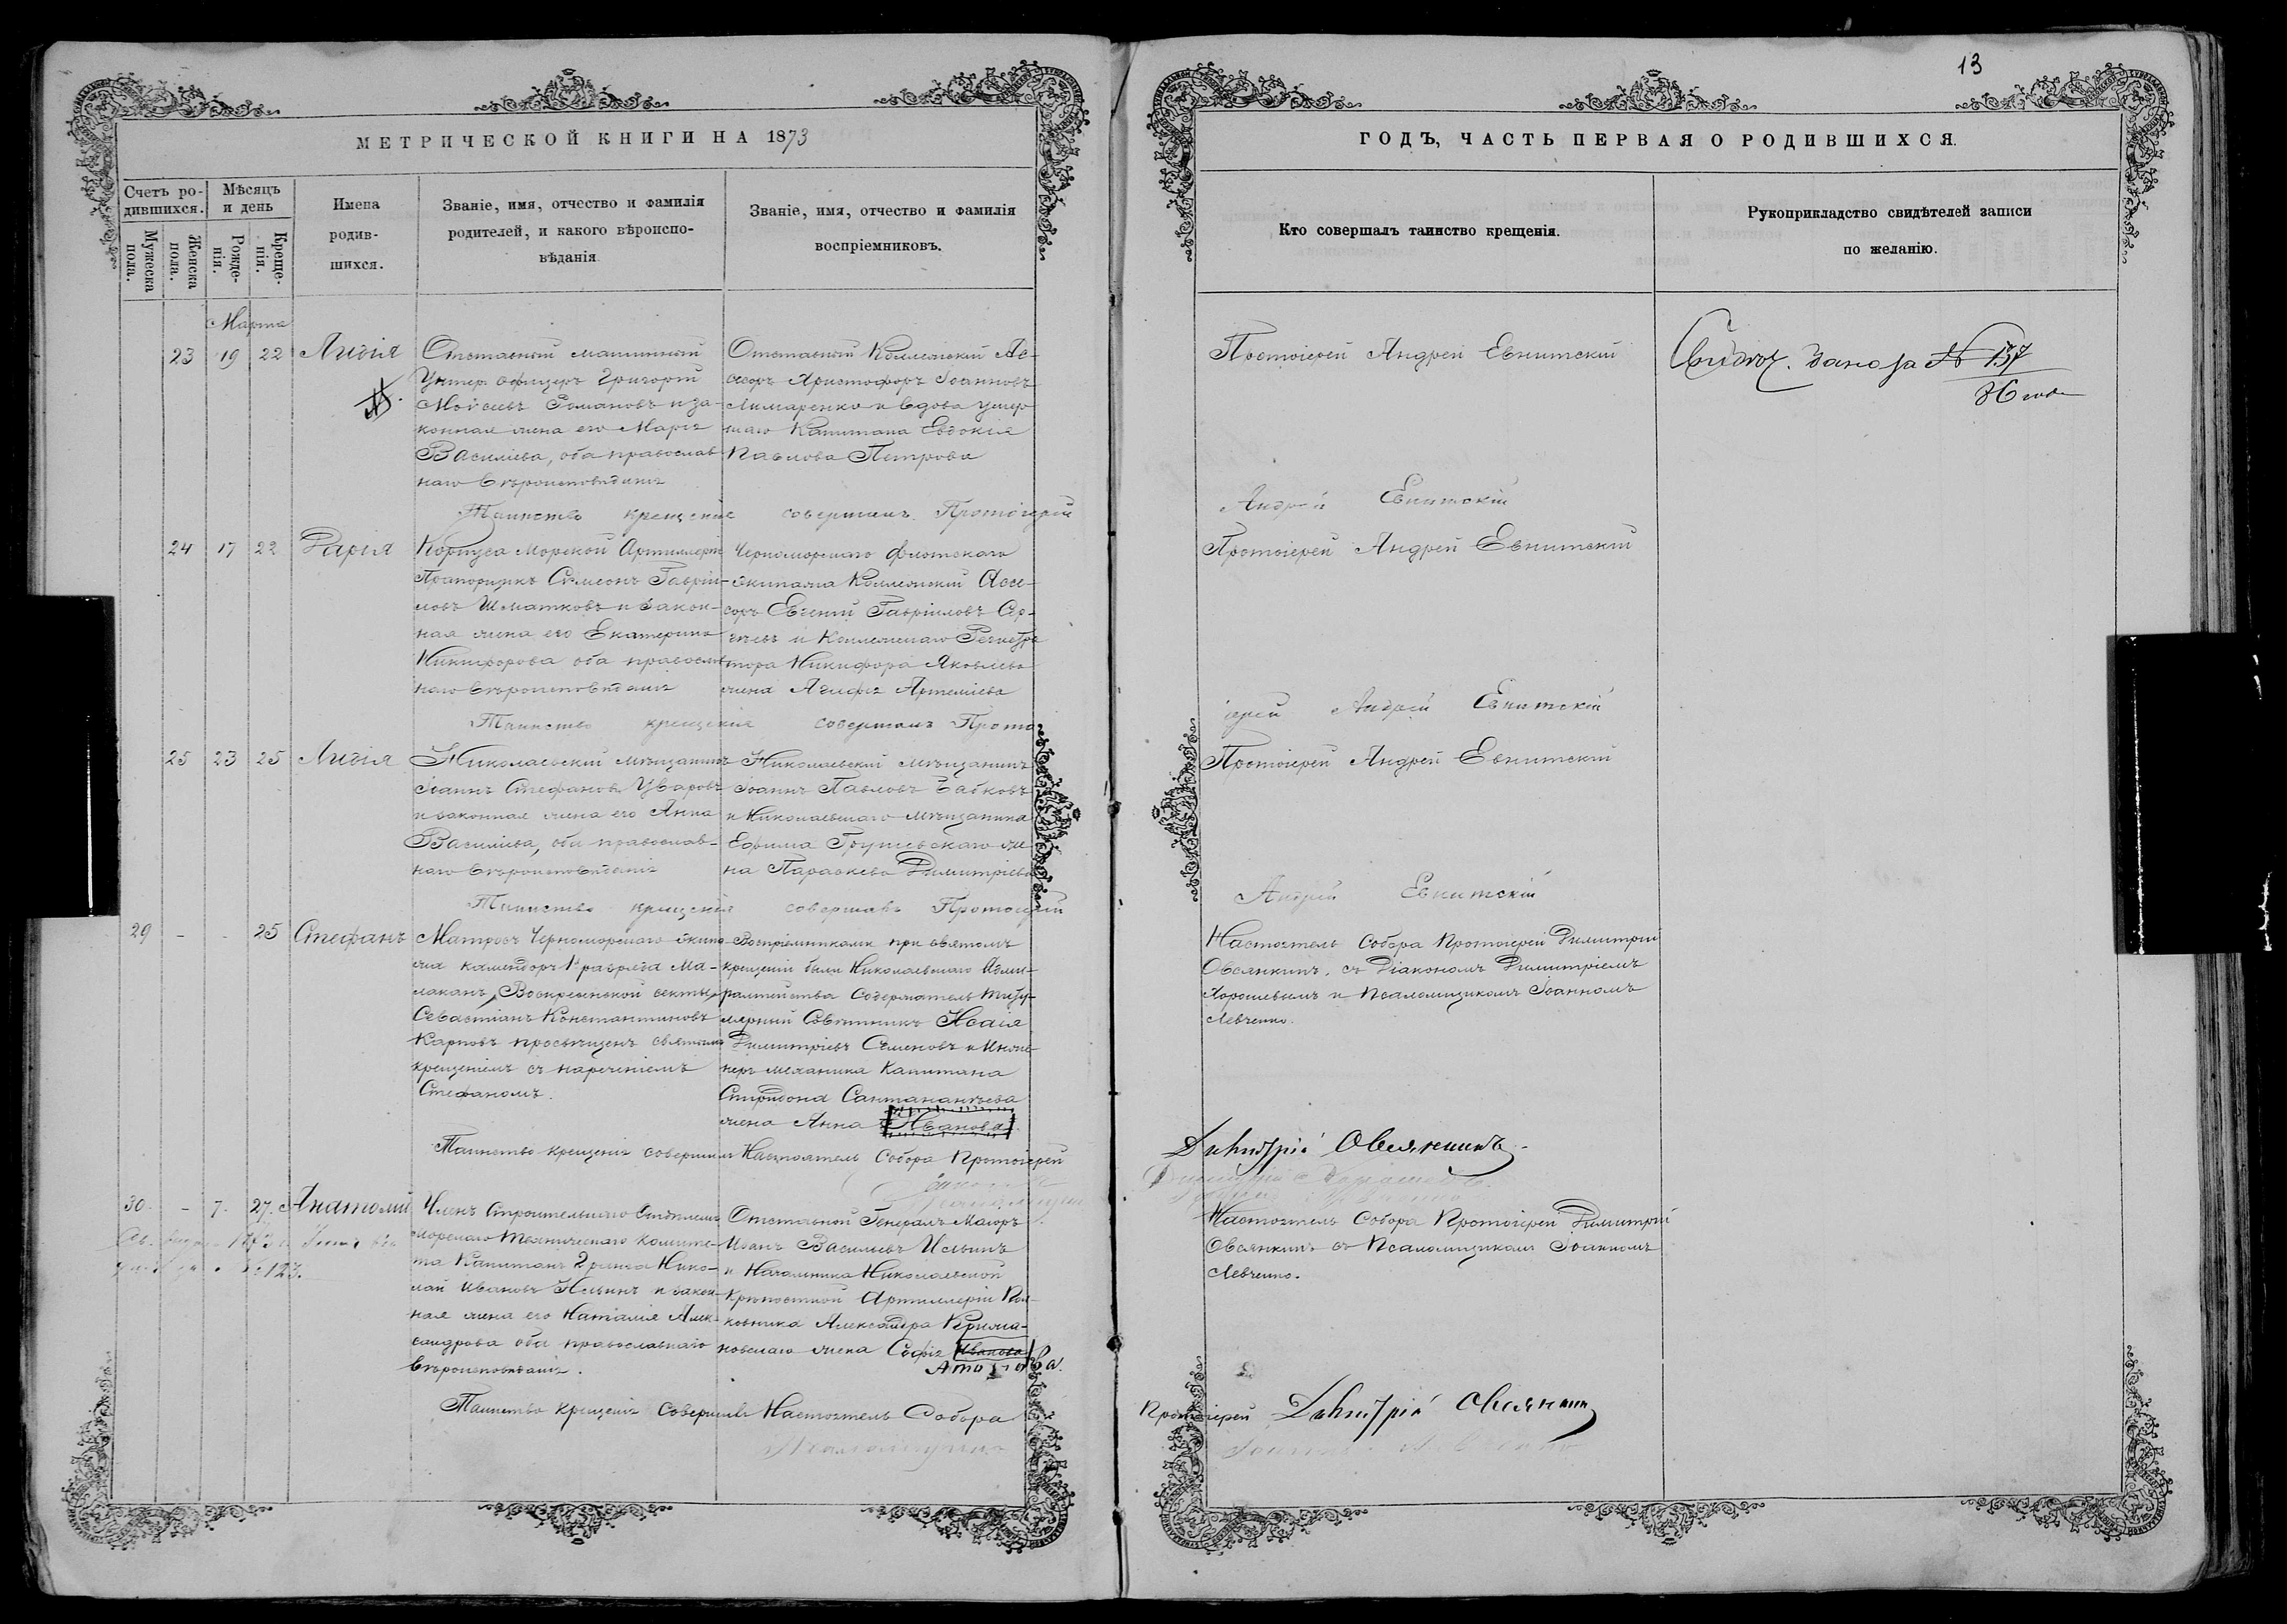 13
МЕТРИЧЕСКОЙ КНИГИ НА 1873
Счетъ ро-
дившихся.
Мѣсяцъ
и день
Мужеска
пола.
Женска
пола.
Рожде-
нія.
Креще-
нія.
Имена
родив-
шихся.
Званіе, имя, отчество и фамилія
родителей, и какого вѣроиспо-
вѣданія
Званіе, имя, отчество и фамилія
воспріемниковъ.
Марта
23 19 22 Лидія
Отставный
Унтеръ офицеръ Григорій
Моѵсеевъ Романовъ и за-
конная жена его Марія
Василіева, оба православ
наго вѣроисповѣданія
Отставный Коллежскій Ас-
сесоръ Христофоръ Іоанновъ
Лимаренко и вдова умер
шаго Капитана Евдокія
Павлова Петрова
Таинство крещенія совершилъ Протоіерей
24 17 22 Дарія
Корпуса Морской Артиллеріи
Прапорщикъ Сѵмеонъ Гавріи-
ловъ Шматковъ и закон-
ная жена его Екатерина
Никифорова оба православ
наго вѣроисповѣданія
Черноморскаго флотскаго
экипажа Коллежскій Ассе-
соръ Евгеній Гавріиловъ Сер-
гѣевъ и Коллежскаго Регистра
тора Никифора Яковлева
жена Агафія Артеміева
Таинство крещенія совершилъ Прото
25 23 25 Лидія
Николаевскій мѣщанинъ
Іоаннъ Стефановъ Уваровъ
и законная жена его Анна
Василіева, оба православ-
наго вѣроисповѣданія
Николаевскій мѣщанинъ
Іоаннъ Павловъ Бабковъ
и Николаевскаго мѣщанина
Ефима Грушевскаго же
на Параскева Димитріева
Таинство крещенія совершилъ Протоіерей
29 - - 25 Стефанъ
Матросъ Черноморскаго экипа
жа камендоръ 1 разряда Ма-
лаканъ, Воскресенской секты,
Севастіанъ Константиновъ
Карповъ просвѣщенъ святымъ
крещеніемъ съ нареченіемъ
Стефаномъ.
Воспріемниками при святомъ
крещеніи были Николаевскаго Адми-
ралтейства Содержатель Титу-
лярный Совѣтникъ Исаія
Димитріевъ Семеновъ и Инже-
неръ механика Капитана
Спиридона
жена Анна Иванова
Таинство крещенія совершилъ Настоятель Собора Протоіерей
30. - 7. 27. Анатолій
Членъ Строительнаго Отдѣленія
Морскаго Техническаго Комите-
та Капитанъ 2 ранга Нико-
лай Ивановъ Ильинъ и закон-
ная жена его Наталія Алек-
сандрова оба православнаго
вѣроисповѣданія.
Отставной Генералъ Маіоръ
Иванъ Васильевъ Ильинъ
и Начальника Николаевской
Крѣпостной Артиллеріи Пол-
ковника Александра
новскаго жена Софія Иванова
Таинство крещенія совершилъ Настоятель Собора
ГОДЪ, ЧАСТЬ ПЕРВАЯ О РОДИВШИХСЯ.
Кто совершалъ таинство крещенія.
Рукоприкладство свидѣтелей записи
по желанію.
Протоіерей Андрей Евнитскій
Андрей Евнитскій
Протоіерей Андрей Евнитскій
іерей Андрей Евнитскій
Протоіерей Андрей Евнитскій
Андрей Евнитскій
Настоятель Собора Протоіерей Димитрій
Овсянкинъ, съ Діакономъ Димитріемъ
Хорошевымъ и Псаломщикомъ Іоанномъ
Левченко.
Димитрій Овсянкинъ
Настоятель Собора Протоіерей Димитрій
Овсянкинъ съ Псаломщикомъ Іоанномъ
Левченко.
Протоіерей Димитрій Овсянкинъ